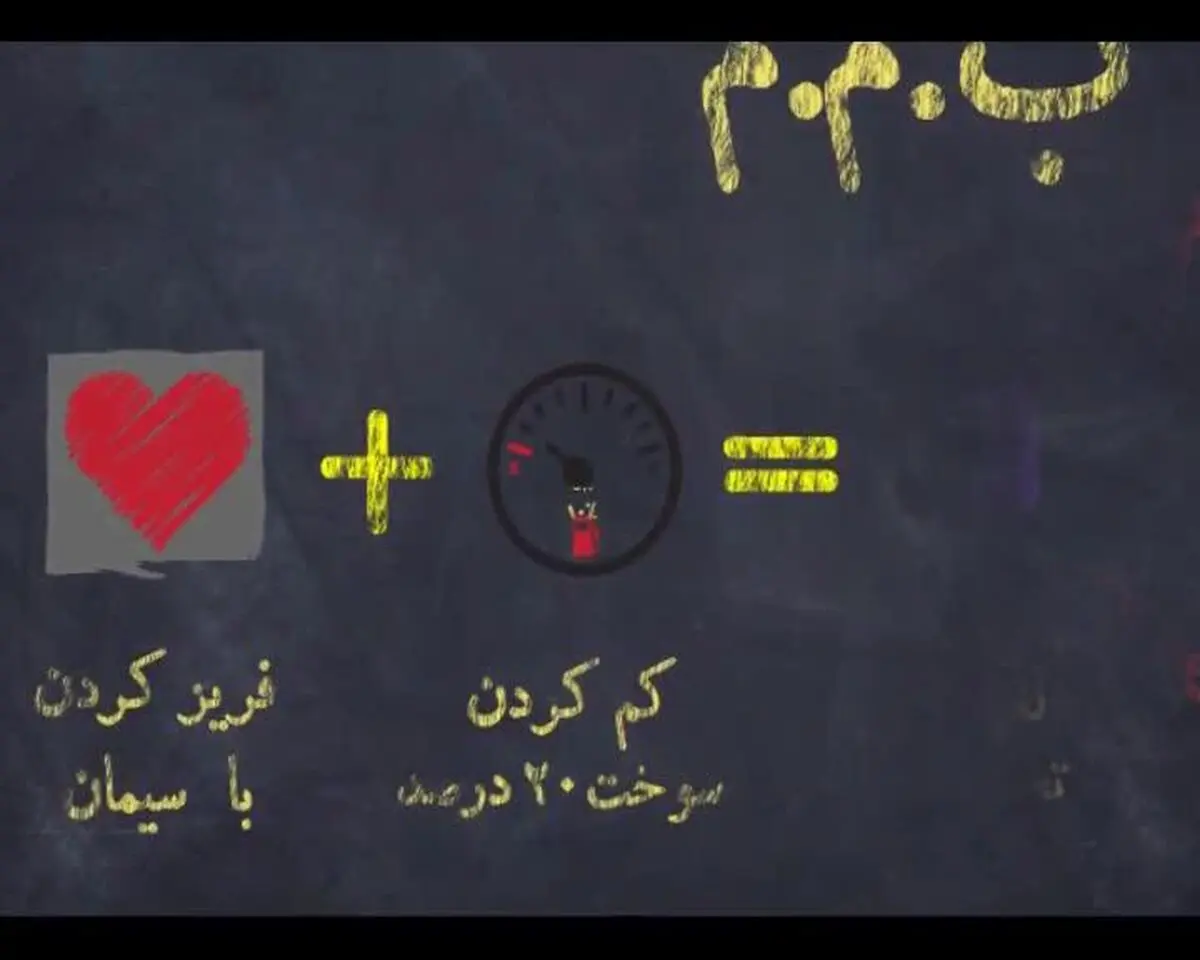 ب.م.م
فریز کردن
با سیمان
+
کم کردن
سوخت ۲۰ درصد
=